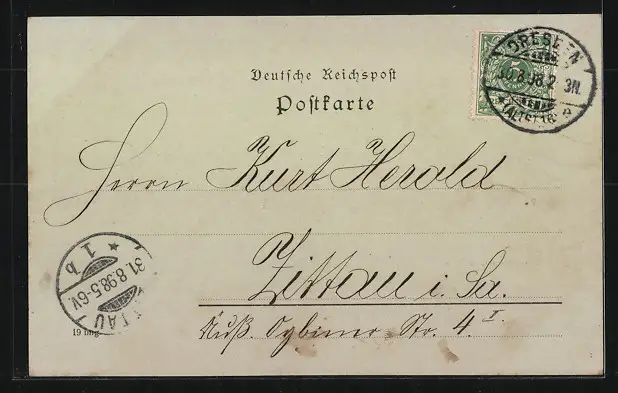 Deutsche Reichspost
Postkarte
DRESDEN
30.8.98.2-3N.
(ALTST.)16. a
5
Herrn Kurt Herold
Zittau i. Sa.
Äuß. Oybiner Str. 4 I.
1 b
31.8.98.5-6V.
ZITTAU
19